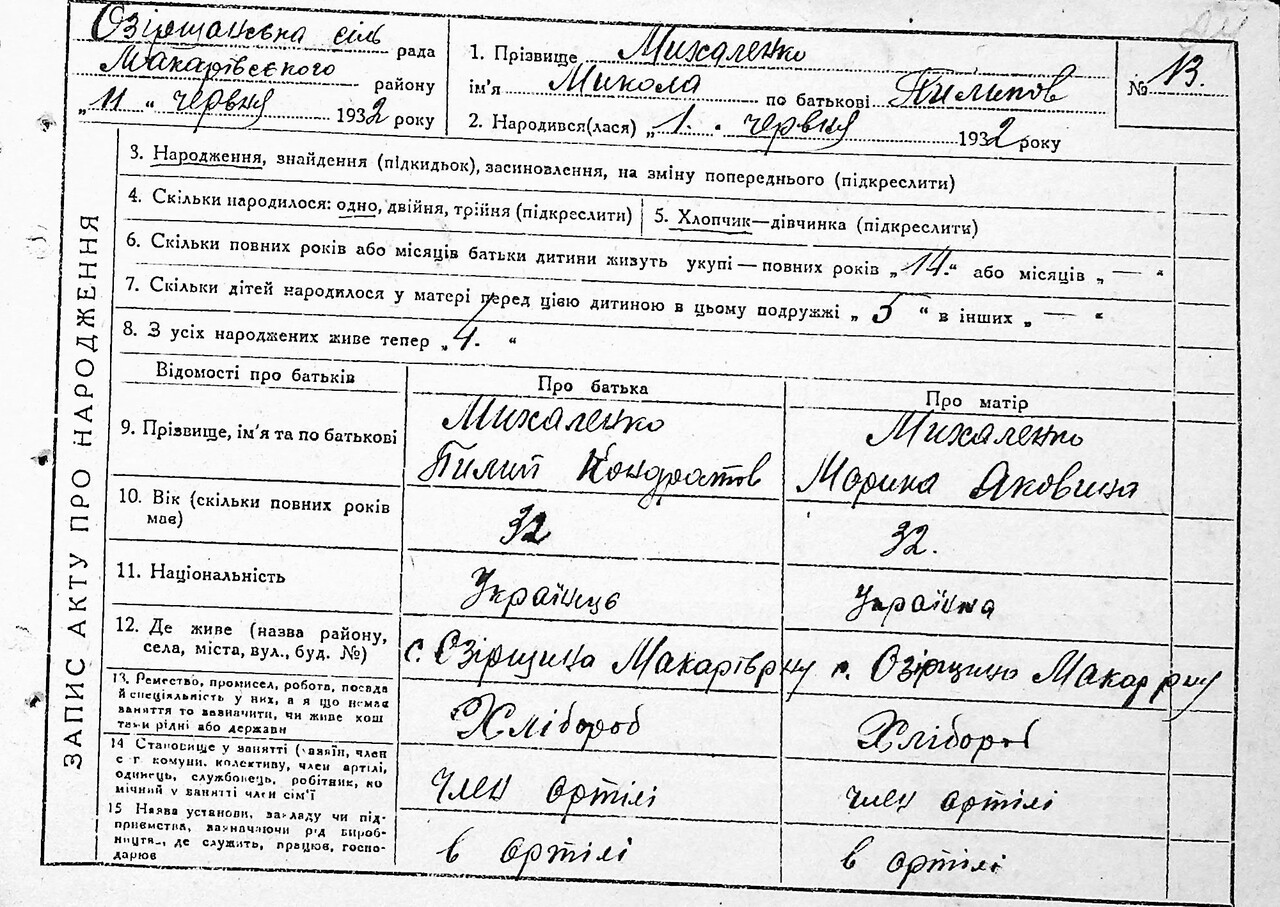 Озірщанська сіль рада
Макарівського району
„11" червня 1932 року
1. Прізвище Михаленко
ім'я Микола по батькові Пилипов
2. Народився(лася) „1. " червня 1932 року
№ 13.
ЗАПИС АКТУ ПРО НАРОДЖЕННЯ
3. Народження, знайдення (підкидьок), засиновлення, на зміну попереднього (підкреслити)
4. Скільки народилося: одно, двійня, трійня (підкреслити) 5. Хлопчик—дівчинка (підкреслити)
6. Скільки повних років або місяців батьки дитини живуть укупі — повних років „14." або місяців „ — "
7. Скільки дітей народилося у матері перед цією дитиною в цьому подружжі „ 5 " в інших „ — "
8. З усіх народжених живе тепер „4. "
Відомості про батьків Про батька Про матір
9. Прізвище, ім'я та по батькові
Михаленко
Пилип Кондратов
Михаленко
Марина Яковина
10. Вік (скільки повних років
має)
32
32.
11. Національність
Українець
Українка
12. Де живе (назва району,
села, міста, вул., буд. №)
с. Озірщина Макарів рну
с. Озірщина Макар рну
13. Ремество, промисел, робота, посада
й спеціальність у них, а я що немає
заняття то зазначити, чи живе кош
тами рідні або держави
Хлібороб
Хлібороб
14 Становище у занятті (хазяїн, член
с г. комуни, колективу, член артілі,
одинець, службовець, робітник, по
мічний у занятті член сім'ї
член артілі
член артілі
15 Назва установи, закладу чи під-
приємства, зазначаючи рід вироб-
ництва, де служить, працює, госпо-
дарює
в артілі
в артілі